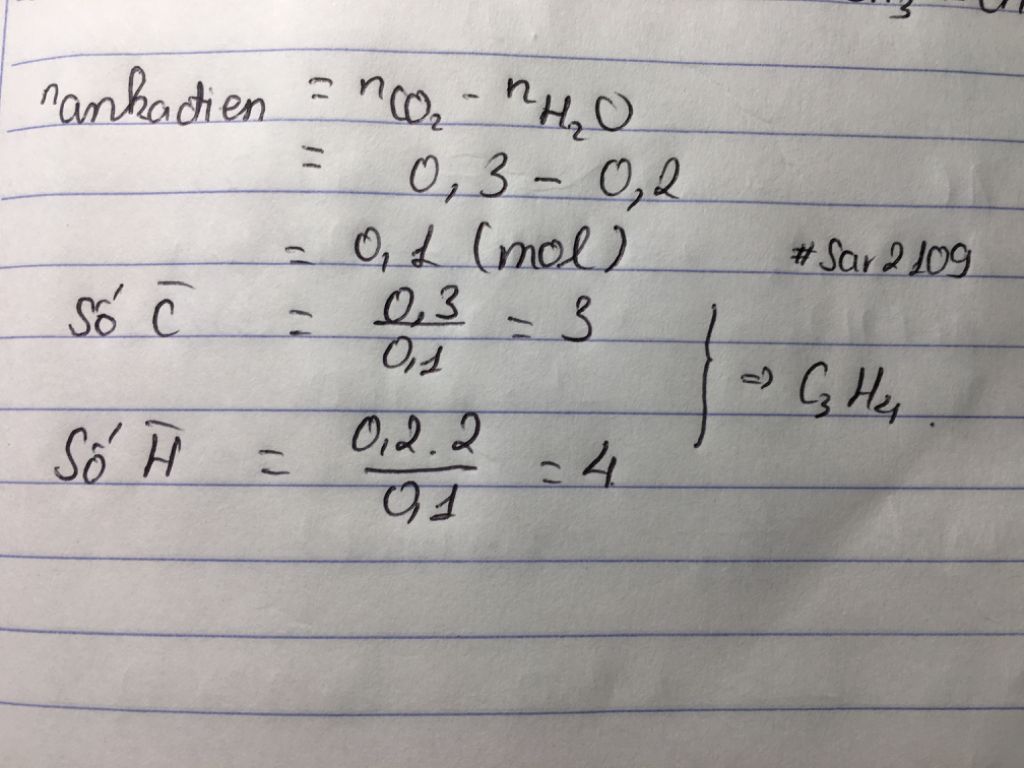 nankadien = nCO₂ - nH₂O
= 0,3 - 0,2
= 0,1 (mol)
#Sar2109
Số C̅ = 0,3/0,1 = 3
Số H̅ = 0,2.2/0,1 = 4
} => C₃H₄.